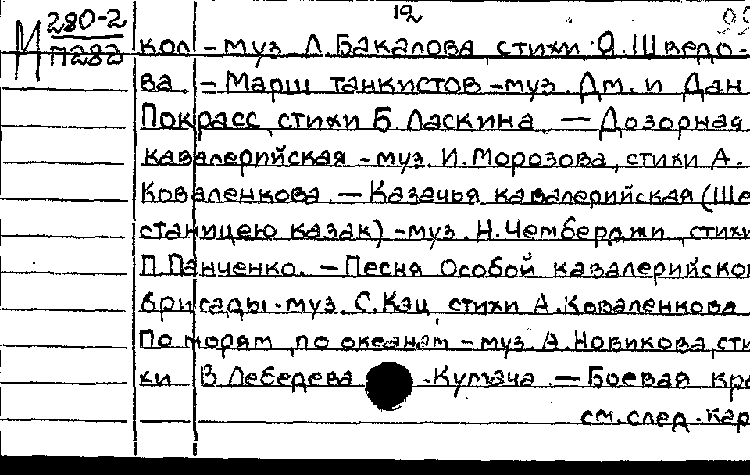 12
М 280-2
П282
кол - муз. Л. Бакалова, стихи О. Шведо-
ва. - Марш танкистов - муз. Дм. и Дан
Покрасс, стихи Б. Ласкина — Дозорная
кавалерийская - муз. И. Морозова, стихи А.
Коваленкова. — Казачья кавалерийская (Ше
станицею казак) - муз. Н. Чемберджи, стихи
П. Панченко. — Песня Особой кавалерийской
бригады - муз. С. Кац, стихи А. Коваленкова
По морям, по океанам - муз. А. Новикова, сти
хи В Лебедева - Кумача. — Боевая кра
см. след. кар